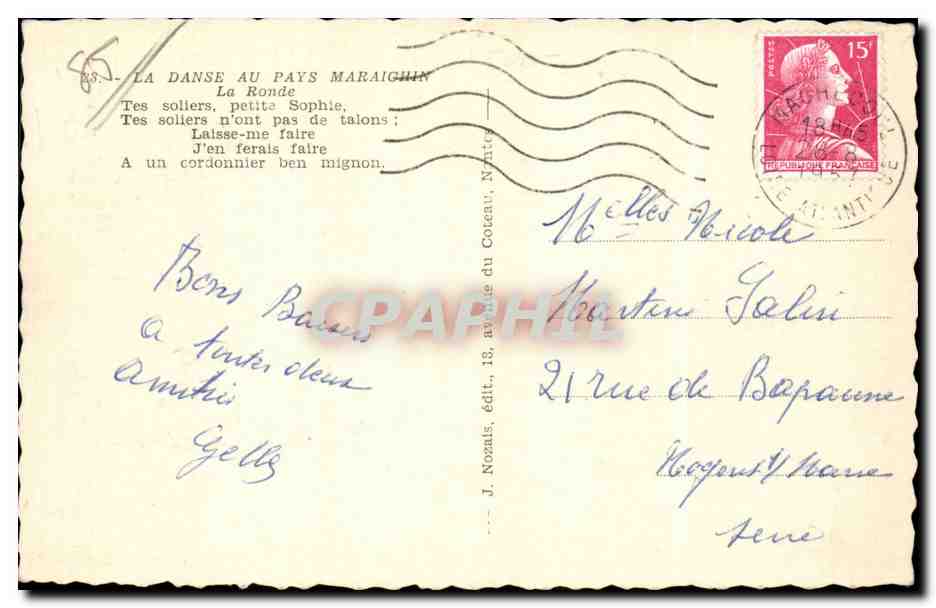 85
23. - LA DANSE AU PAYS MARAICHIN
La Ronde
Tes soliers, petite Sophie,
Tes soliers n'ont pas de talons ;
Laisse-me faire
J'en ferais faire
A un cordonnier ben mignon.
Bons Baisers
a toutes deux
Amitiés
J. Nozais, édit., 13, avenue du Coteau, Nantes
POSTES
15F
REPUBLIQUE FRANÇAISE
18 H45
1957
LOIRE ATLANTIQUE
Melles Nicole
Martine Salin
21 rue de Bapaume
Nogent s/ Marne
Seine
CPAPHIL